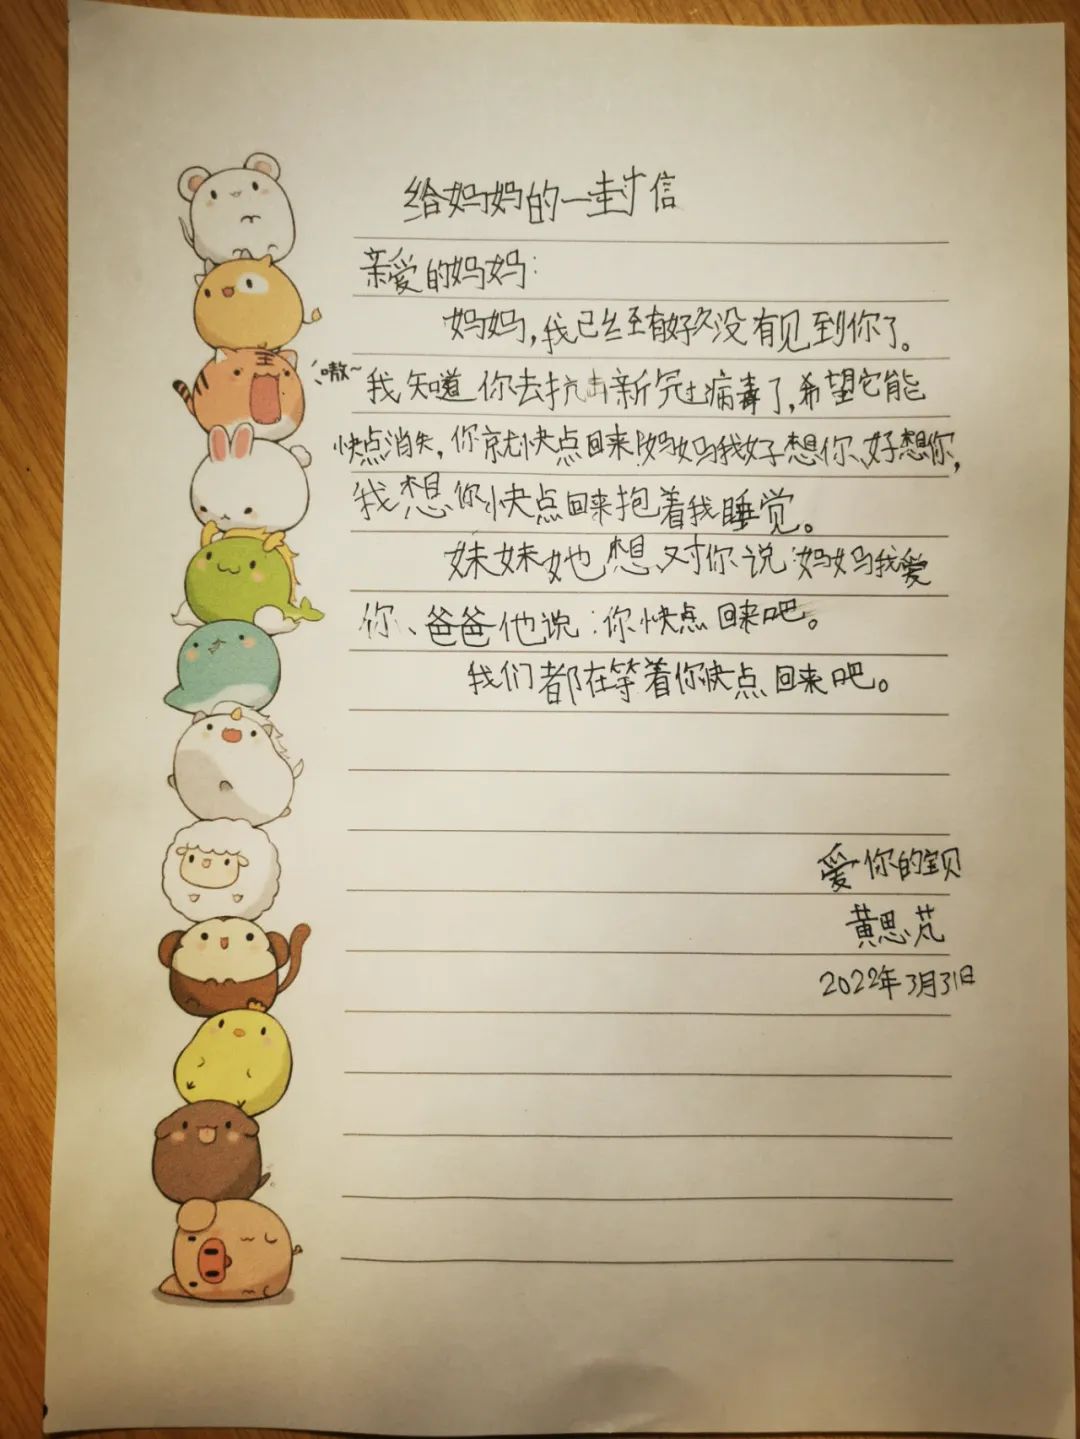 给妈妈的一封信
亲爱的妈妈:
妈妈,我已经有好久没有见到你了。
嗷~
我知道你去抗击新冠病毒了,希望它能
快点消失,你就快点回来!妈妈我好想你、好想你,
我想你快点回来抱着我睡觉。
妹妹她想对你说:妈妈我爱
你、爸爸他说:你快点回来吧。
我们都在等着你快点回来吧。
爱你的宝贝
黄思芃
2022年3月31日